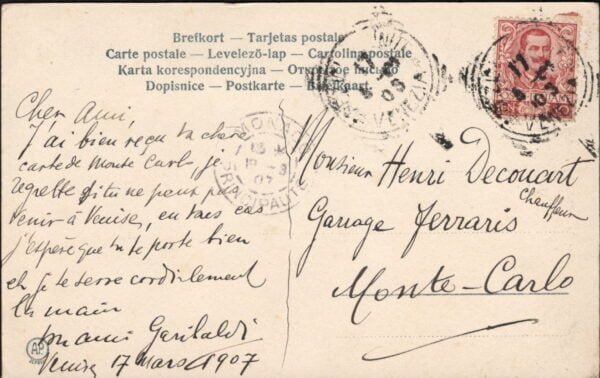 Brefkort — Tarjetas postale
Carte postale — Levelező-lap — Cartolina postale
Karta korespondencyjna — Открытое письмо
Dopisnice — Postkarte — Briefkaart.
Cher Ami,
J'ai bien reçu ta chère
carte de Monte Carlo, je
regrette si tu ne peux pas
venir à Venise, en tous cas
j'espère que tu te porte bien
et je te serre cordialement
la main
ton ami Garibaldi
Venise 17 mars 1907
Monsieur Henri Decouart
Chauffeur
Garage Ferraris
Monte-Carlo
VENEZIA
VENEZIA
MONACO
PRINCIPAUTÉ
AP